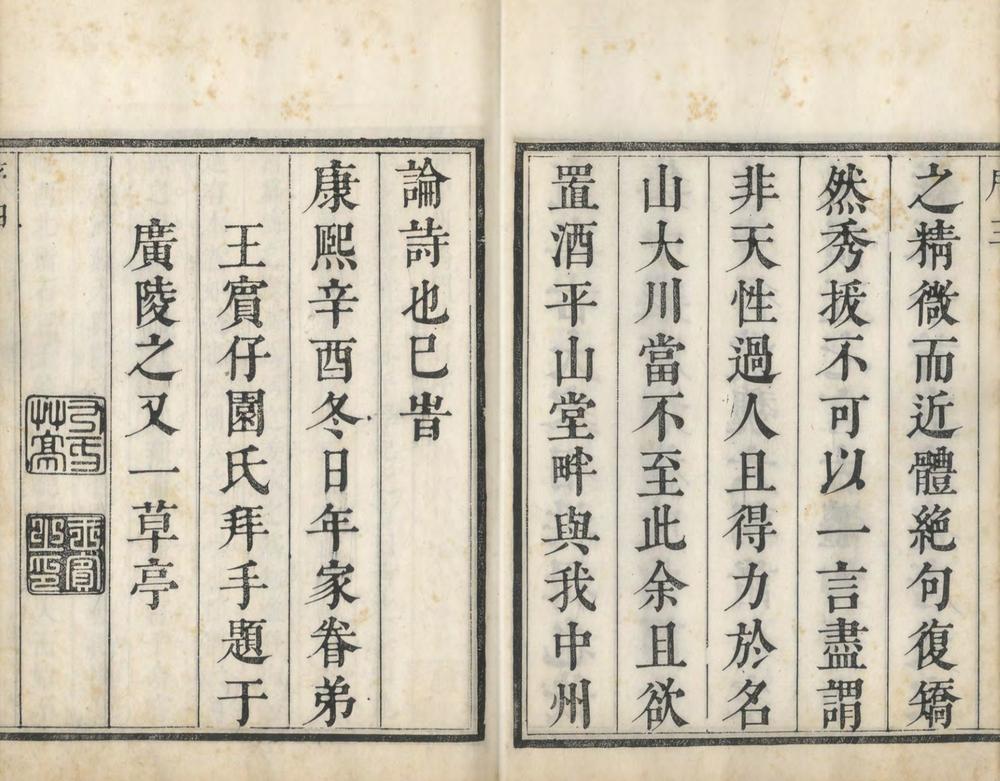 之精微而近體絶句復矯
然秀拔不可以一言盡謂
非天性過人且得力於名
山大川當不至此余且欲
置酒平山堂畔與我中州
論詩也已旹
康熙辛酉冬日年家眷弟
王賔仔園氏拜手題于
廣陵之又一草亭
王賓之印